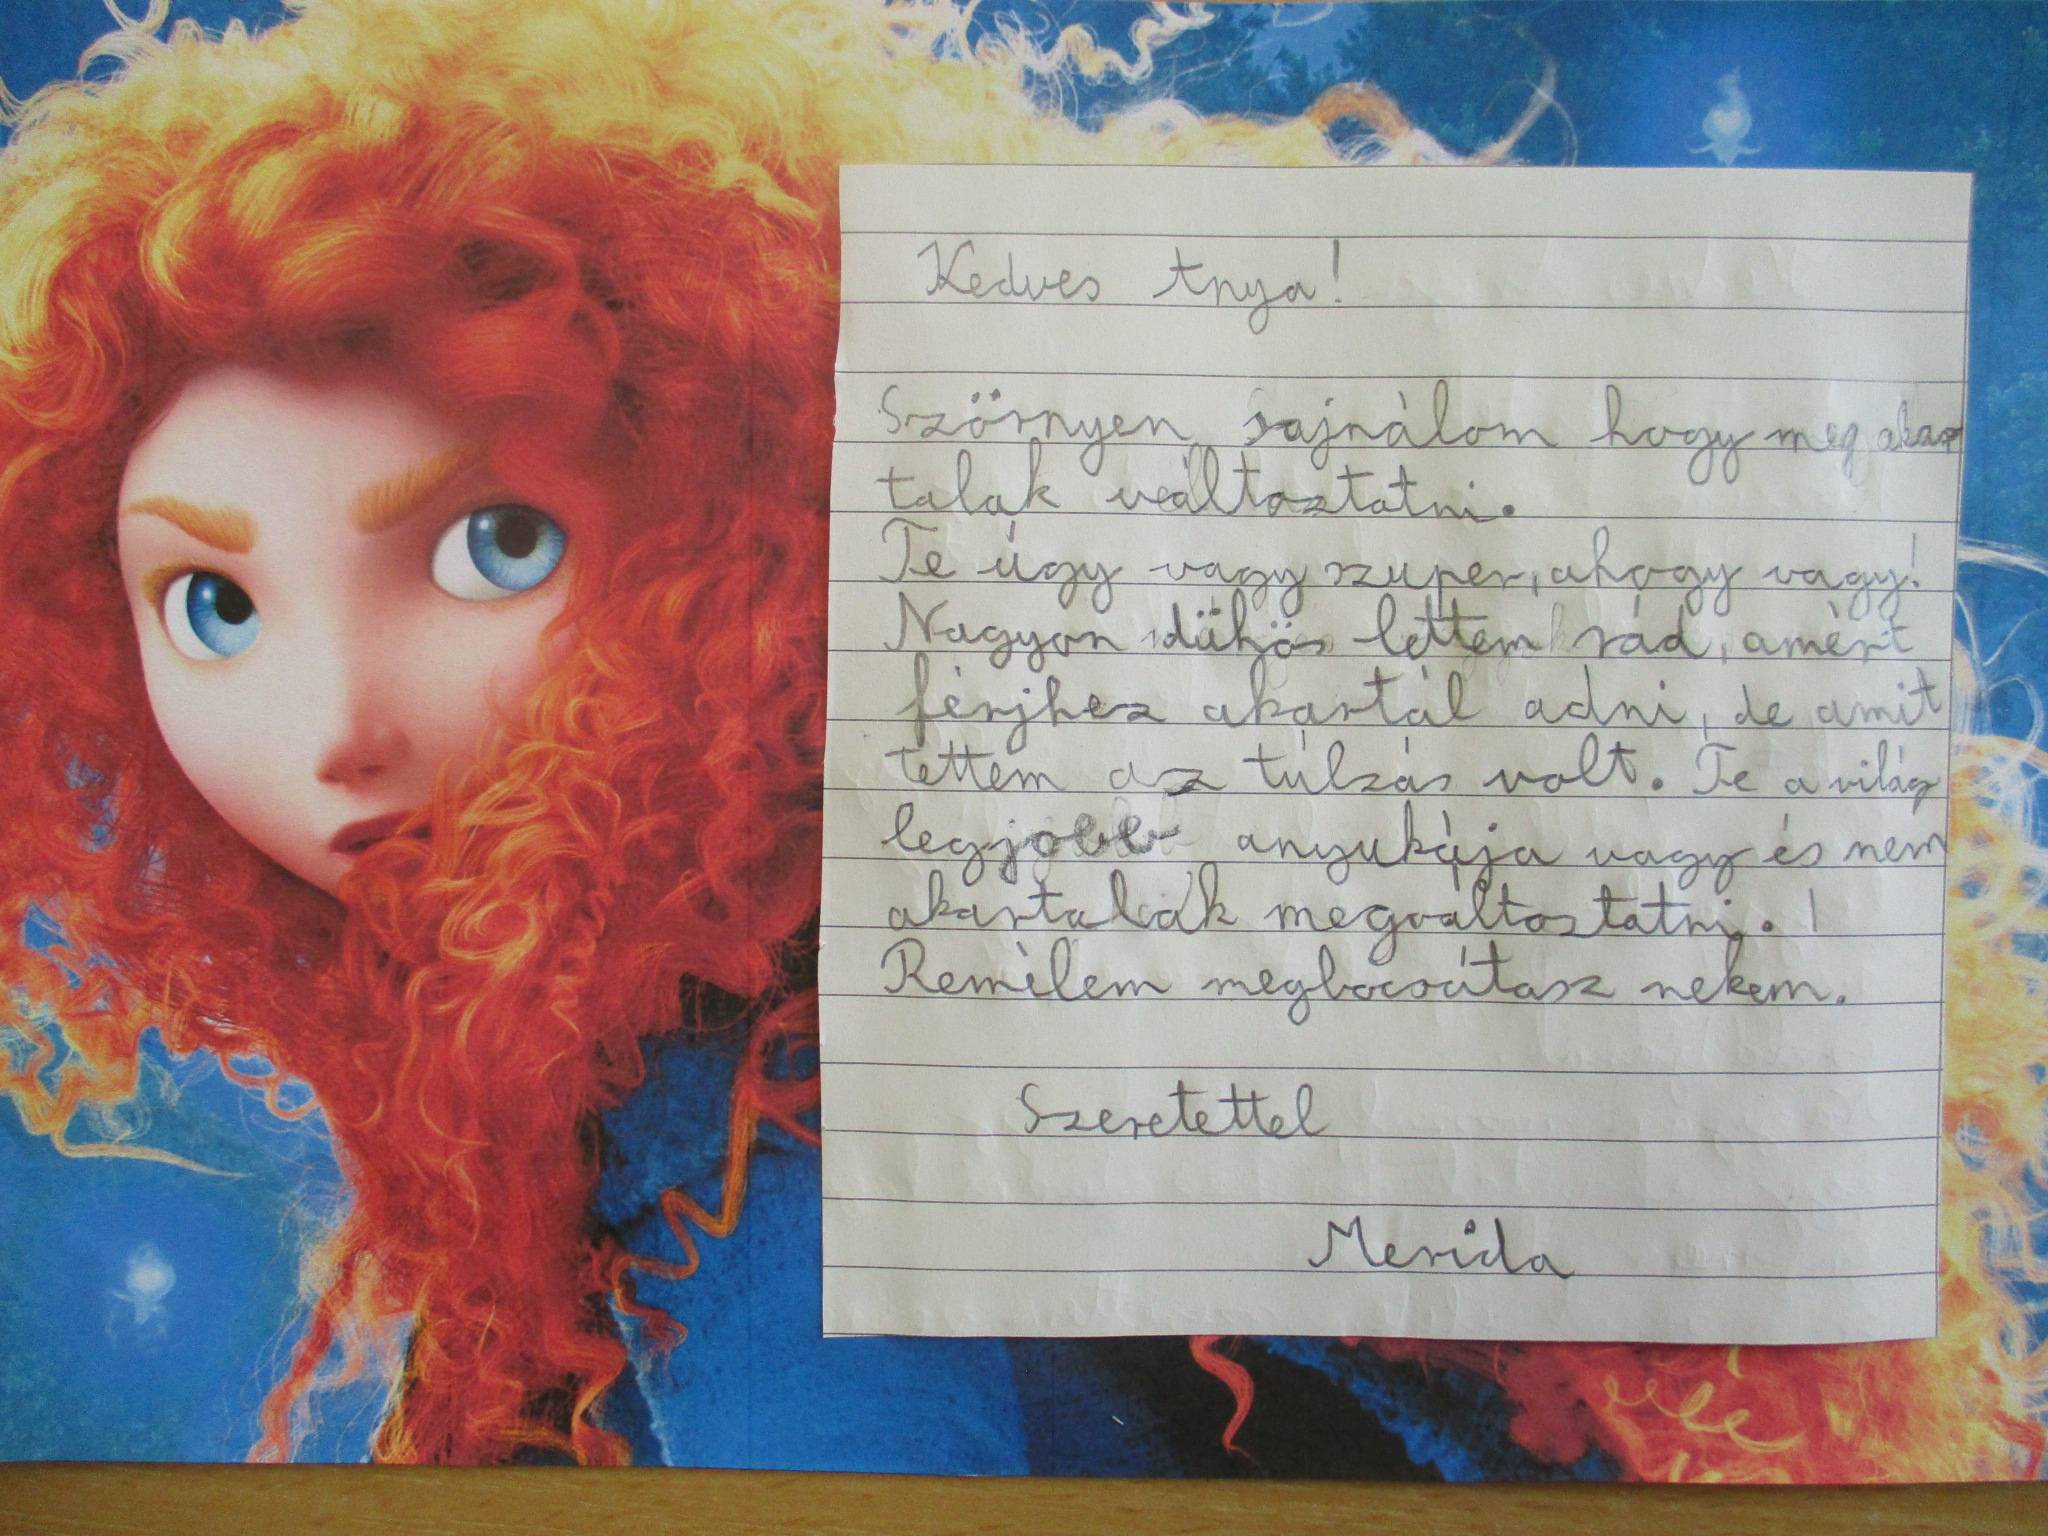 Kedves Anya!
Szörnyen sajnálom hogy meg akar
talak változtatni.
Te úgy vagy szuper, ahogy vagy!
Nagyon dühös lettem rád, amért
férjhez akartál adni, de amit
tettem az túlzás volt. Te a világ
legjobb anyukája vagy és nem
akartalak megváltoztatni.!
Remélem megbocsátasz nekem.
Szeretettel
Merida